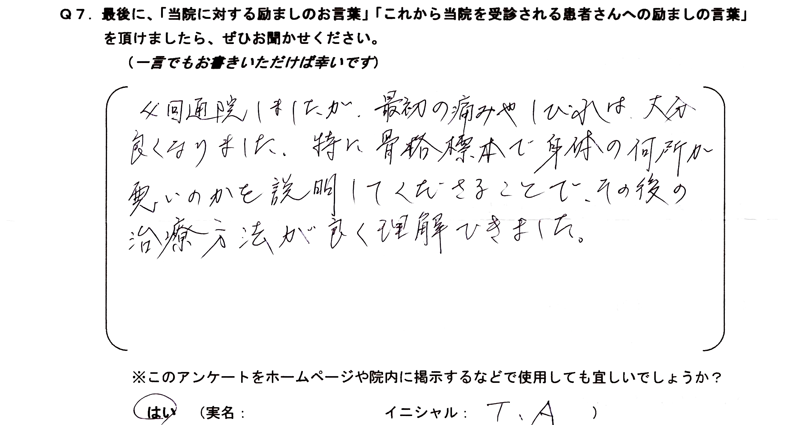 Q7．最後に、「当院に対する励ましのお言葉」「これから当院を受診される患者さんへの励ましの言葉」
を頂けましたら、ぜひお聞かせください。
（一言でもお書きいただけば幸いです）
4回通院しましたが、最初の痛みやしびれは、大分
良くなりました。特に骨格標本で身体の何所が
悪いのかを説明してくださることで、その後の
治療方法が良く理解できました。
※このアンケートをホームページや院内に掲示するなどで使用しても宜しいでしょうか？
はい （実名： イニシャル： T、A ）